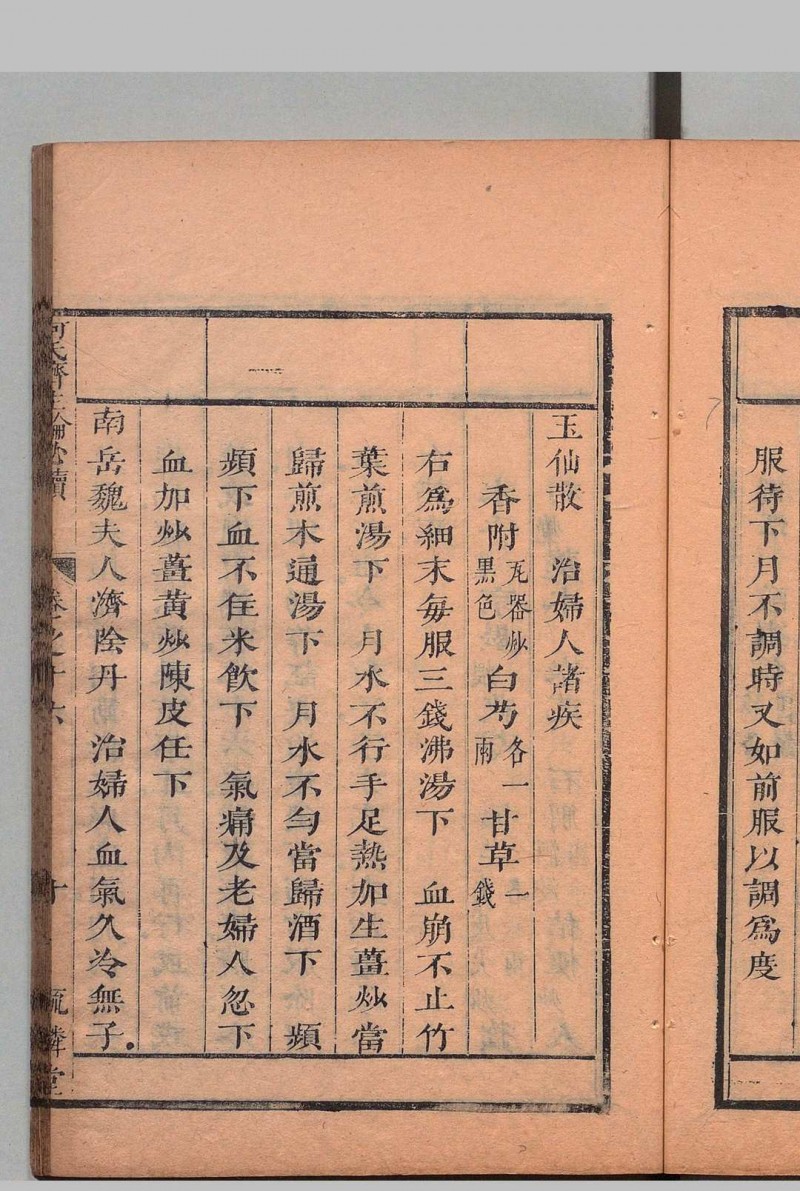 服待下月不調時又如前服以調爲度
玉仙散 治婦人諸疾
香附瓦器炒黑色白芍各一兩甘草一錢
右爲細末每服三錢沸湯下 血崩不止竹
葉煎湯下 月水不行手足熱加生薑炒當
歸煎木通湯下 月水不勻當歸酒下 頻
頻下血不住米飲下 氣痛及老婦人忽下
血加炒薑黃炒陳皮任下
南岳魏夫人濟陰丹 治婦人血氣久冷無子
何氏濟生論必讀 卷之十六 十 毓麟堂